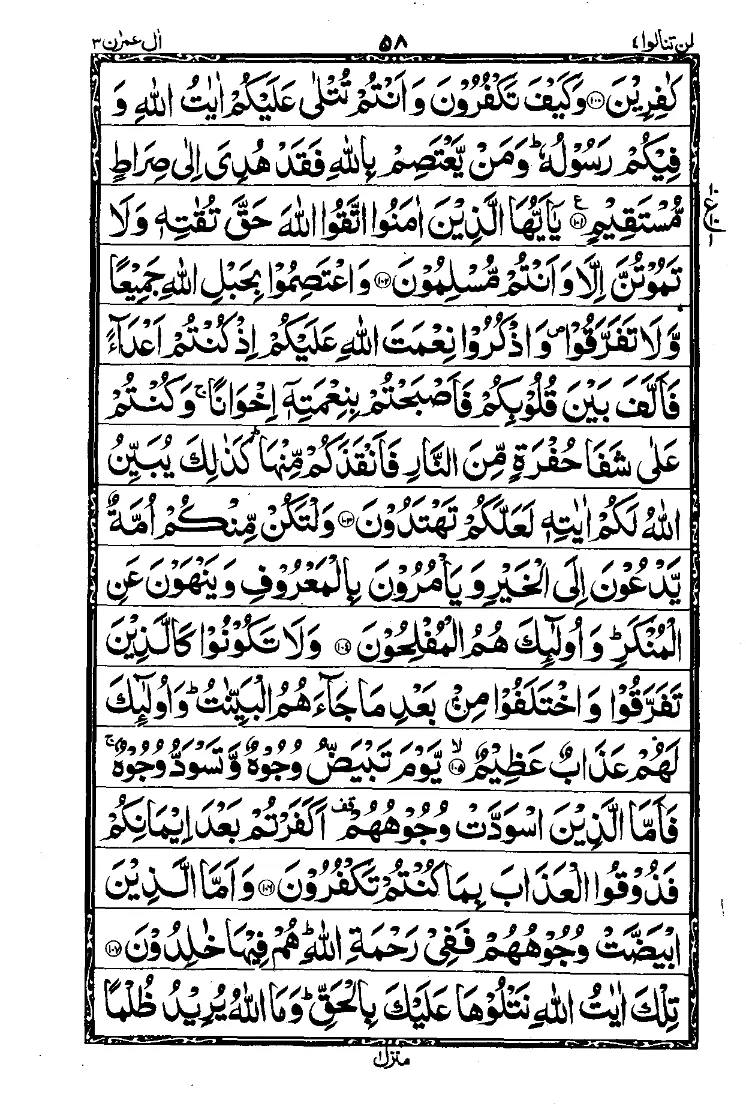 لن تنالوا ٤
٥٨
اٰل عمرٰن ٣
كٰفِرِيْنَ ۝١٠٠ وَكَيْفَ تَكْفُرُوْنَ وَاَنْتُمْ تُتْلٰى عَلَيْكُمْ اٰيٰتُ اللّٰهِ وَ
فِيْكُمْ رَسُوْلُهٗ ؕ وَمَنْ يَّعْتَصِمْ بِاللّٰهِ فَقَدْ هُدِىَ اِلٰى صِرَاطٍ
مُّسْتَقِيْمٍ ۝١٠١ ع يٰٓاَيُّهَا الَّذِيْنَ اٰمَنُوا اتَّقُوا اللّٰهَ حَقَّ تُقٰتِهٖ وَلَا
تَمُوْتُنَّ اِلَّا وَاَنْتُمْ مُّسْلِمُوْنَ ۝١٠٢ وَاعْتَصِمُوْا بِحَبْلِ اللّٰهِ جَمِيْعًا
وَّلَا تَفَرَّقُوْا ص وَاذْكُرُوْا نِعْمَتَ اللّٰهِ عَلَيْكُمْ اِذْ كُنْتُمْ اَعْدَآءً
فَاَلَّفَ بَيْنَ قُلُوْبِكُمْ فَاَصْبَحْتُمْ بِنِعْمَتِهٖٓ اِخْوَانًا ۚ وَكُنْتُمْ
عَلٰى شَفَا حُفْرَةٍ مِّنَ النَّارِ فَاَنْقَذَكُمْ مِّنْهَا ؕ كَذٰلِكَ يُبَيِّنُ
اللّٰهُ لَكُمْ اٰيٰتِهٖ لَعَلَّكُمْ تَهْتَدُوْنَ ۝١٠٣ وَلْتَكُنْ مِّنْكُمْ اُمَّةٌ
يَّدْعُوْنَ اِلَى الْخَيْرِ وَيَاْمُرُوْنَ بِالْمَعْرُوْفِ وَيَنْهَوْنَ عَنِ
الْمُنْكَرِ ؕ وَاُولٰٓئِكَ هُمُ الْمُفْلِحُوْنَ ۝١٠٤ وَلَا تَكُوْنُوْا كَالَّذِيْنَ
تَفَرَّقُوْا وَاخْتَلَفُوْا مِنْۢ بَعْدِ مَا جَآءَهُمُ الْبَيِّنٰتُ ؕ وَاُولٰٓئِكَ
لَهُمْ عَذَابٌ عَظِيْمٌ ۝١٠٥ ۙ يَّوْمَ تَبْيَضُّ وُجُوْهٌ وَّتَسْوَدُّ وُجُوْهٌ ۚ
فَاَمَّا الَّذِيْنَ اسْوَدَّتْ وُجُوْهُهُمْ قف اَكَفَرْتُمْ بَعْدَ اِيْمَانِكُمْ
فَذُوْقُوا الْعَذَابَ بِمَا كُنْتُمْ تَكْفُرُوْنَ ۝١٠٦ وَاَمَّا الَّذِيْنَ
ابْيَضَّتْ وُجُوْهُهُمْ فَفِيْ رَحْمَةِ اللّٰهِ ؕ هُمْ فِيْهَا خٰلِدُوْنَ ۝١٠٧
تِلْكَ اٰيٰتُ اللّٰهِ نَتْلُوْهَا عَلَيْكَ بِالْحَقِّ ؕ وَمَا اللّٰهُ يُرِيْدُ ظُلْمًا
منزل ١